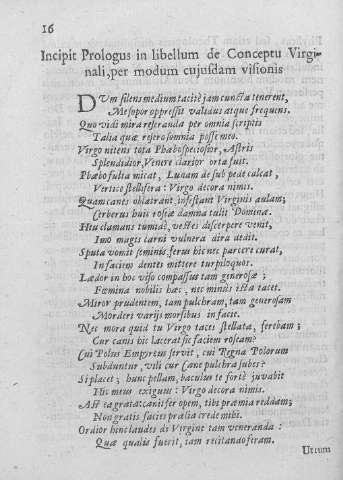 16
Incipit Prologus in libellum de Conceptu Virgi-
nali, per modum cujusdam visionis
DVm silens medium tacitè jam cuncta tenerent,
Me sopor oppressit valdus atque frequens.
Quo vidi mira referanda per omnia scriptis
Talia quæ refero somnia posse meo.
Virgo nitens tota Phæbo speciosior, Astris
Splendidior, Venere clarior orta fuit.
Phæbo fulta micat, Lunam de sub pede calcat,
Vertice stellifera: Virgo decora nimis.
Quam canes oblatrant, infestant Virginis aulam;
Cerberus huic roseæ damna tulit Dominæ.
Hæc clamans tumidè, vestes discerpere venit,
Imo magis carni vulnera dira dedit.
Sputa vomit feminis ferus hic nec parcere curat,
In faciem dentes mittere turpiloquos.
Lædor in hoc viso compassus tam generosæ;
Fæmina nobilis hæc, nec minùs ista tacet.
Miror prudentem, tam pulchram, tam generosam
Morderi varijs morsibus in facie.
Nec mora quid tu Virgo taces stellata, ferebam;
Cur canis hic lacerat sic faciem roseam?
Cui Polus Empyreus servit, cui Regna Polorum
Subduntur, vili cur Cane pulchra subes?
Si placet; hunc pellam, baculus te fortè juvabit
Hic meus exiguus: Virgo decora nimis.
Ast ea grata: canti fer opem, tibi præmia reddam;
Non gratis facies prælia crede mihi.
Ordior hinc laudes di Virgine tam veneranda:
Quæ qualis fuerit, tam recitando feram.
Utrum